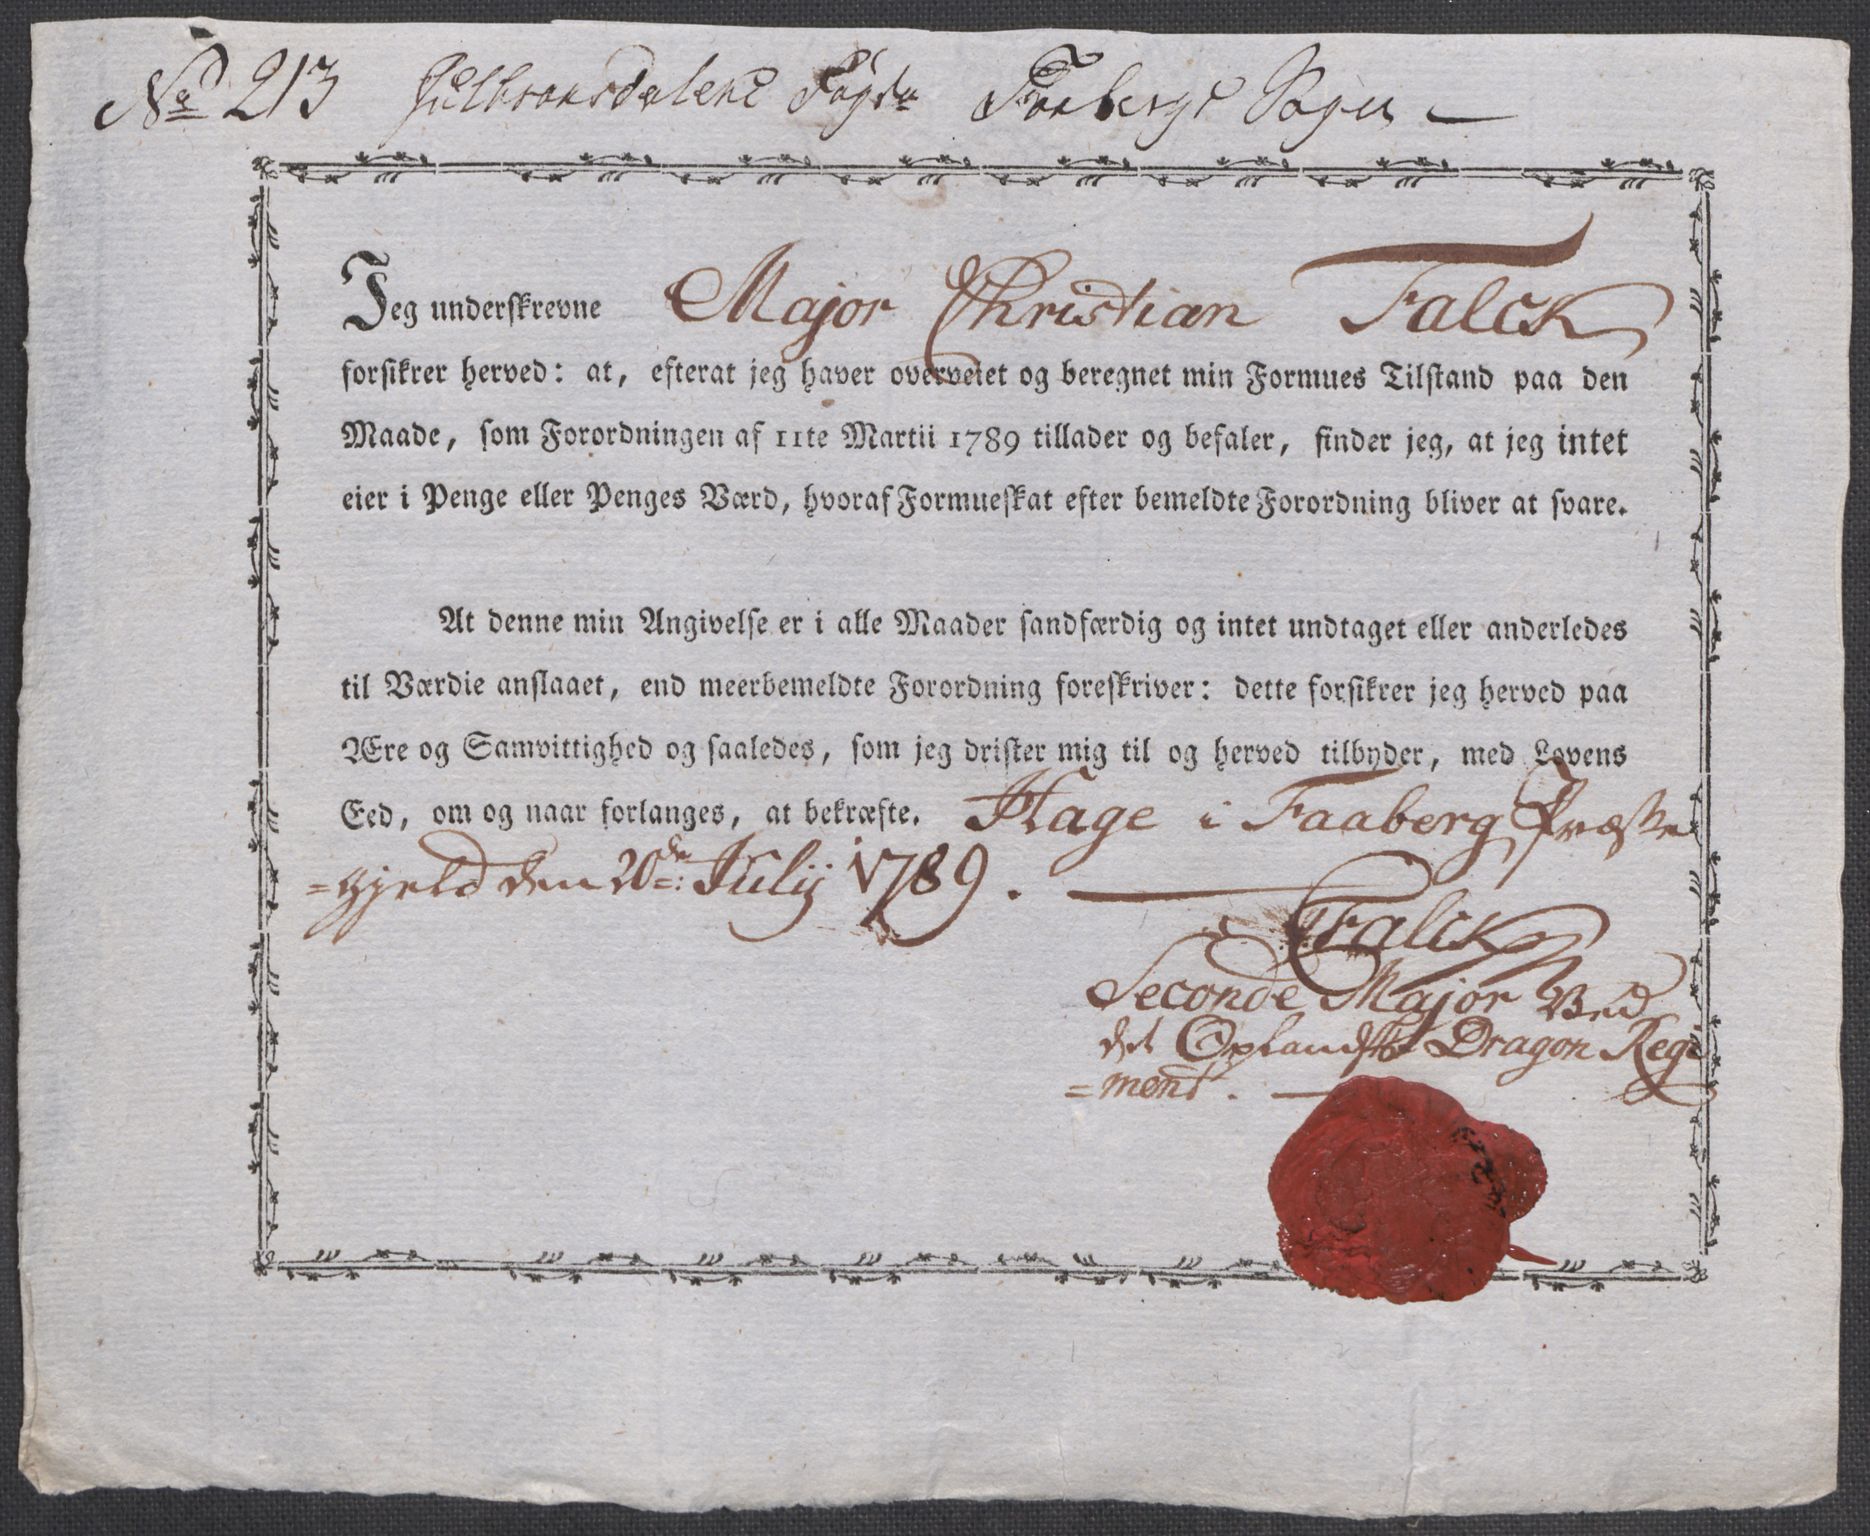 No 213 Gulbransdalens Fogdr Faabergs Sogn
Jeg underskrevne Major Christian Falck
forsikrer herved: at, efterat jeg haver overveiet og beregnet min Formues Tilstand paa den
Maade, som Forordningen af 11te Martii 1789 tillader og befaler, finder jeg, at jeg intet
eier i Penge eller Penges Værd, hvoraf Formueskat efter bemeldte Forordning bliver at svare.
At denne min Angivelse er i alle Maader sandfærdig og intet undtaget eller anderledes
til Værdie anslaaet, end meerbemeldte Forordning foreskriver: dette forsikrer jeg herved paa
Ære og Samvittighed og saaledes, som jeg drister mig til og herved tilbyder, med Lovens
Eed, om og naar forlanges, at bekræfte. Hage i Faaberg Præste
=gjeld den 20de: Julij 1789.
Falck
Seconde Major Ved
det Oplandske Dragon Rege
=ment.